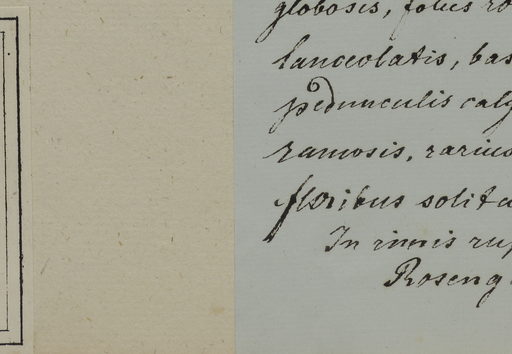 globosis, foliis
lanceolatis, bas
pedunculis caly
ramosis, rarius
floribus solita
In imis rup
Roseng